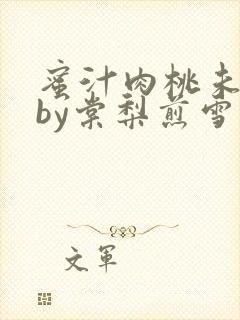 蜜汁肉桃未
by棠梨煎雪
文军